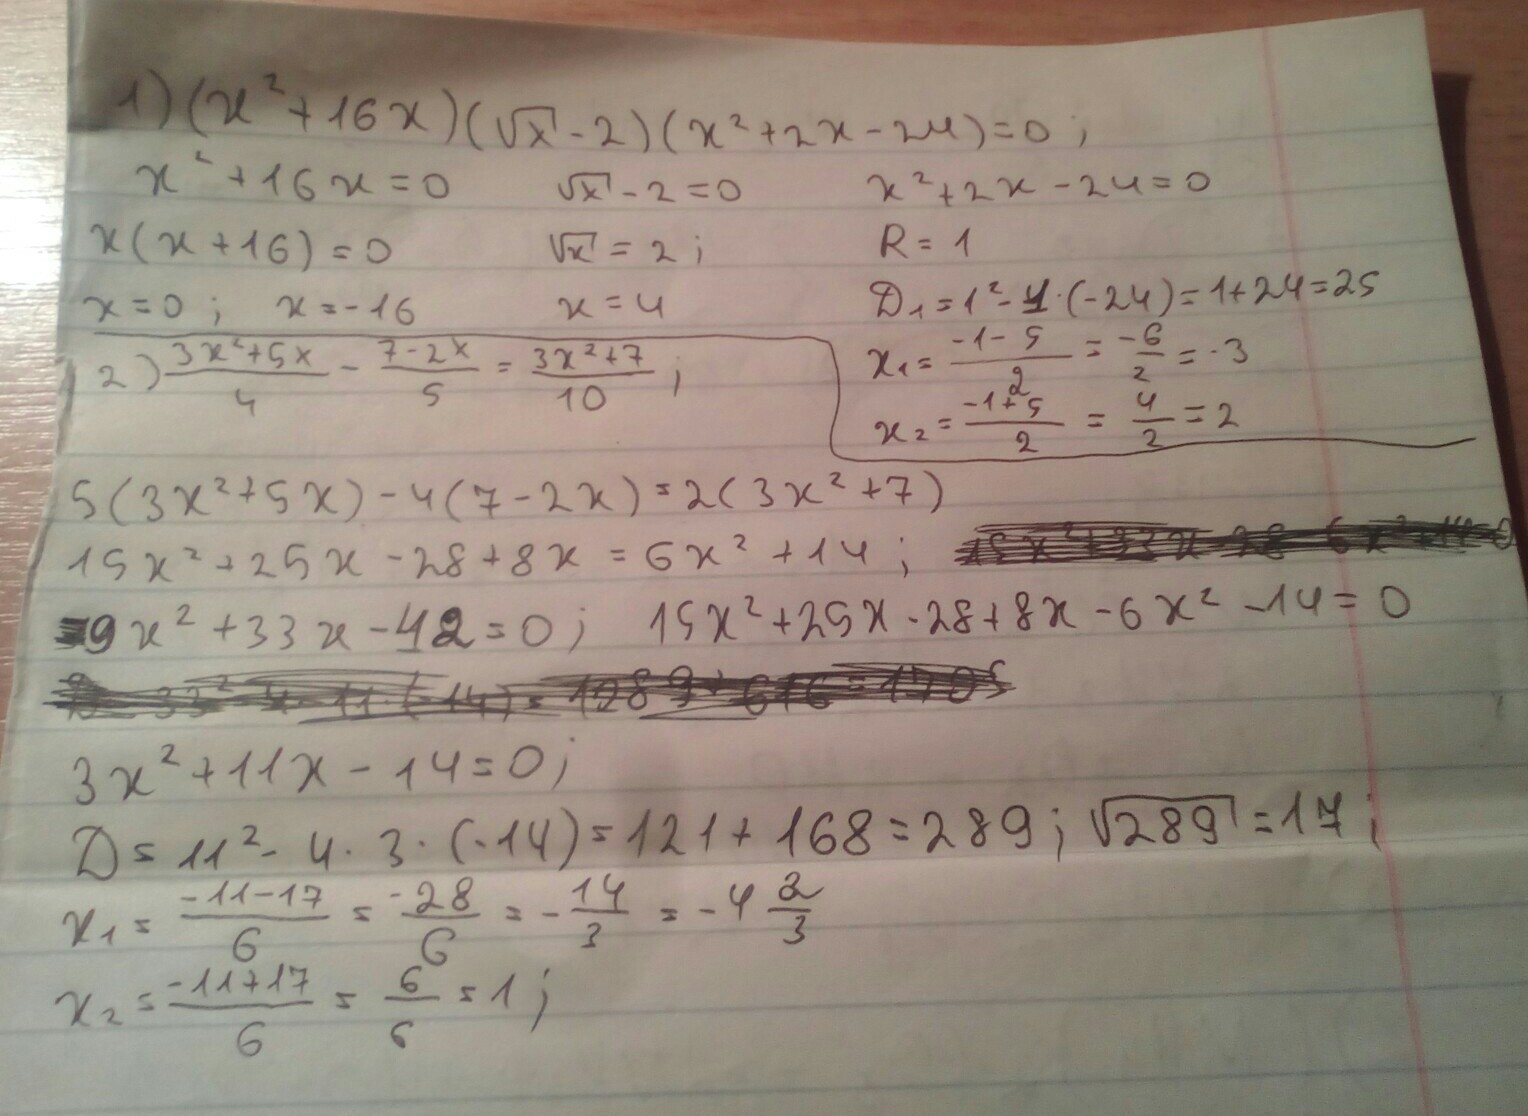 1) (x² + 16x)(√x - 2)(x² + 2x - 24) = 0;
x² + 16x = 0 √x - 2 = 0 x² + 2x - 24 = 0
x(x + 16) = 0 √x = 2; R = 1
x = 0; x = -16 x = 4 D₁ = 1² - 1·(-24) = 1 + 24 = 25
x₁ = (-1 - 5)/2 = -6/2 = -3
x₂ = (-1 + 5)/2 = 4/2 = 2
2) (3x² + 5x)/4 - (7 - 2x)/5 = (3x² + 7)/10;
5(3x² + 5x) - 4(7 - 2x) = 2(3x² + 7)
15x² + 25x - 28 + 8x = 6x² + 14;
9x² + 33x - 42 = 0; 15x² + 25x - 28 + 8x - 6x² - 14 = 0
3x² + 11x - 14 = 0;
D = 11² - 4·3·(-14) = 121 + 168 = 289; √289 = 17;
x₁ = (-11 - 17)/6 = -28/6 = -14/3 = -4 2/3
x₂ = (-11 + 17)/6 = 6/6 = 1;